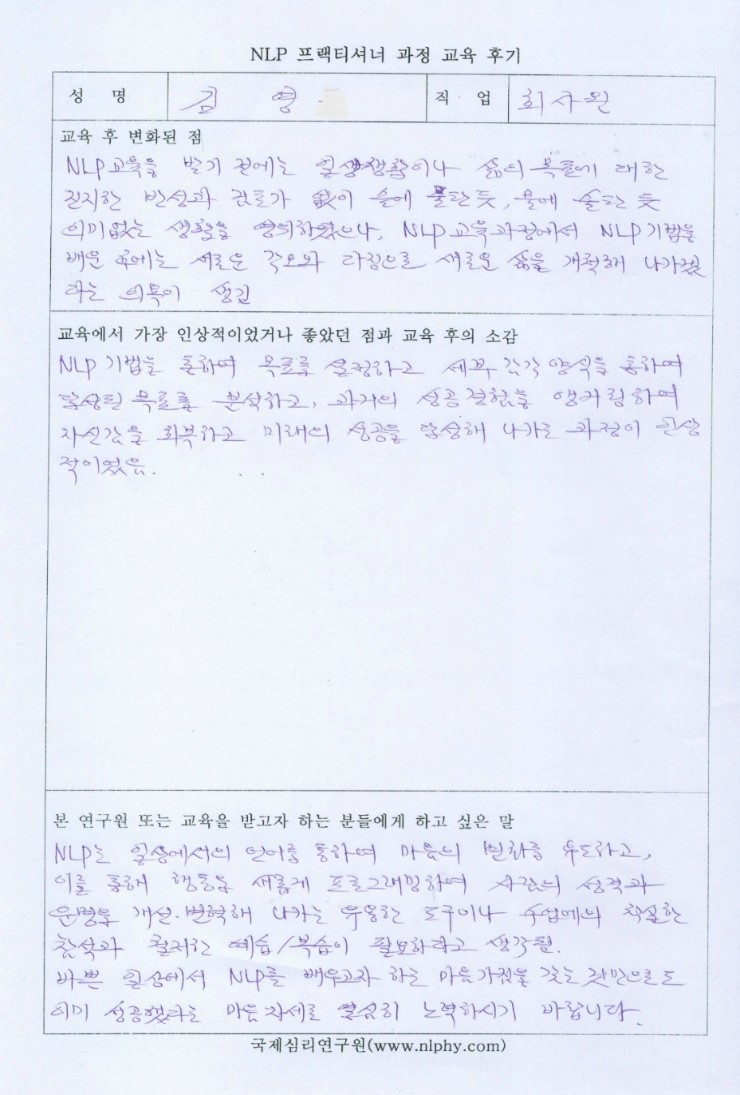 NLP 프랙티셔너 과정 교육 후기
성 명 김 영 직 업 회사원
교육 후 변화된 점
NLP교육을 받기 전에는 일상생활이나 삶의 목표에 대한
진지한 반성과 검토가 없이 술에 물탄 듯, 물에 술탄 듯
의미없는 생활을 영위하였으나, NLP교육과정에서 NLP기법을
배운 후에는 새로운 각오와 다짐으로 새로운 삶을 개척해 나가겠
다는 의욕이 생김
교육에서 가장 인상적이었거나 좋았던 점과 교육 후의 소감
NLP 기법을 통하여 목표를 설정하고 세부 감각 양식을 통하여
달성된 목표를 분석하고, 과거의 성공경험을 앵커링하여
자신감을 회복하고 미래의 성공을 달성해 나가는 과정이 인상
적이었음.
본 연구원 또는 교육을 받고자 하는 분들에게 하고 싶은 말
NLP는 일상에서의 언어를 통하여 마음의 변화를 유도하고,
이를 통해 행동을 새롭게 프로그래밍하여 사람의 성격과
운명을 개선·변혁해 나가는 유용한 도구이나 수업에의 착실한
참석과 철저한 예습/복습이 필요하다고 생각됨.
바쁜 일상에서 NLP를 배우고자 하는 마음가짐을 갖는 것만으로도
이미 성공했다는 마음자세로 열심히 노력하시기 바랍니다.
국제심리연구원(www.nlphy.com)